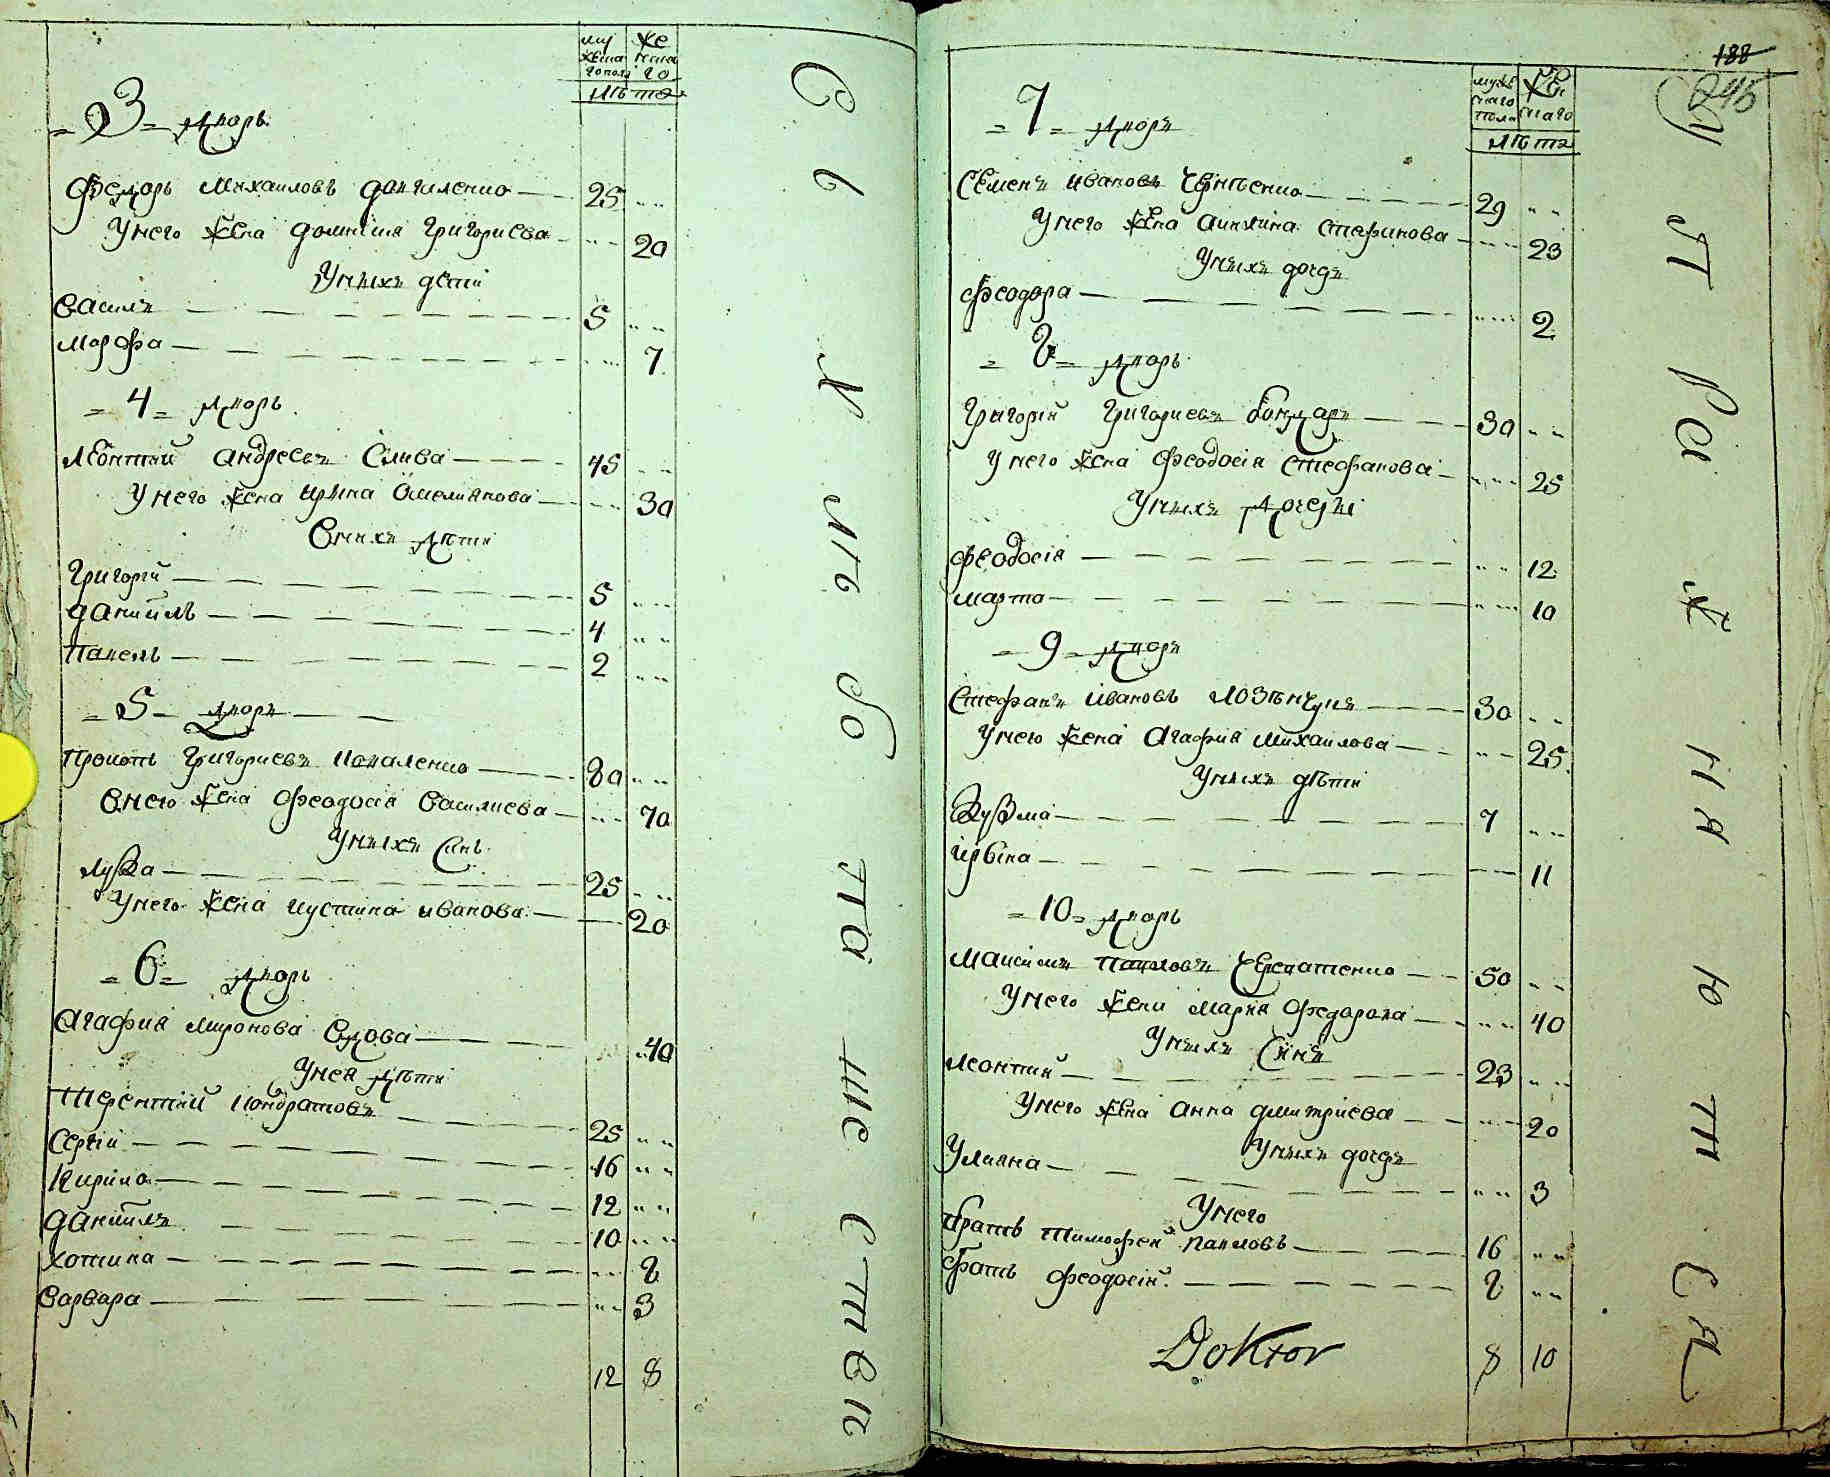 му
жеска
го пола
же
нска
го
лѣта
= 3 = дворъ
Федоръ Михаиловъ Даниленко 25
У него жена Домникия Григориева 20
У нихъ дети
Василъ 5
Марфа 7
= 4 = дворъ
Леонтий Андреевъ Слива 45
У него жена Ирина Омелиянова 30
В них дѣти
Григорій 5
Даниилъ 4
Павелъ 2
= 5 = дворъ
Прокопъ Григориевъ Коваленко 80
В него жена Феодосія Василиева 70
У нихъ Синъ
Лука 25
У него жена Иустина Иванова 20
= 6 = дворъ
Агафия Миронова Вдова 40
У нея дѣти
Терентий Кондратовъ 25
Сергій 16
Кирило 12
Даниилъ 10
Хотина 8
Варвара 3
12 8
188
246
мужес
скаго
пола
же
нскаго
лѣта
= 7 = дворъ
Семенъ Ивановъ 29
У него жена Стефанова 23
У нихъ дочдъ
Феодора 2
= 8 = дворъ
Григорій Григориевъ Бондаръ 30
У него жена Феодосія Стефанова 25
У нихъ дочери
Феодосія 12
Марта 10
= 9 = дворъ
Стефанъ Ивановъ 30
У него жена Агафия Михаилова 25
У нихъ дѣти
Кузма 7
Ирина 11
= 10 = дворъ
Максимъ Павловъ 50
У него жена Мария Федорова 40
У нихъ Синъ
Леонтий 23
У него жена Анна Дмитриева 20
У нихъ дочдъ
Улияна 3
У него
братъ Тимофей Павловъ 16
братъ Феодосій 8
Doktor 8 10